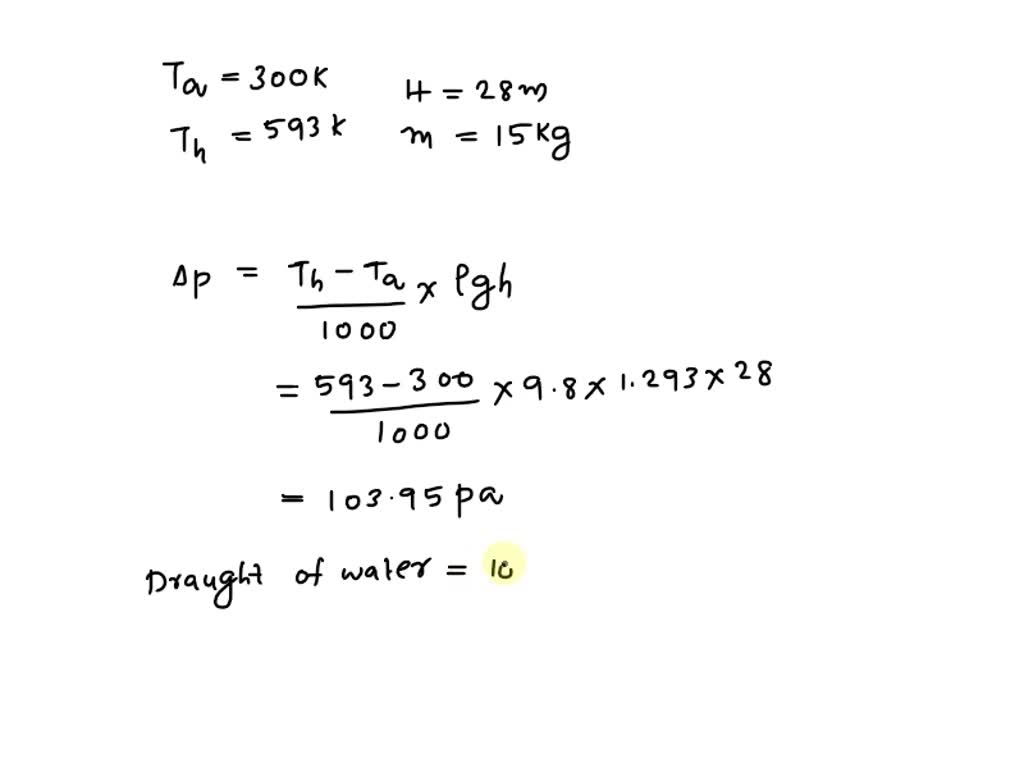 Ta = 300K H = 28m
Th = 593k m = 15kg
Δp = Th - Ta / 1000 × ρgh
= 593 - 300 / 1000 × 9.8 × 1.293 × 28
= 103.95 pa
Draught of water = 10